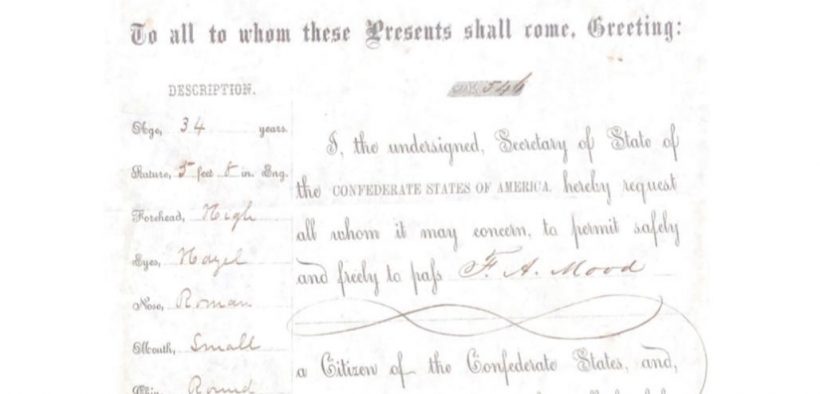 To all to whom these Presents shall come, Greeting:
DESCRIPTION.
Age, 34 years.
Stature, 5 feet 5 in. Eng.
Forehead, High
Eyes, Hazel
Nose, Roman
Mouth, Small
Round
No. 546
I, the undersigned, Secretary of State of
the CONFEDERATE STATES OF AMERICA hereby request
all whom it may concern, to permit safely
and freely to pass F. A. Mood
a Citizen of the Confederate States, and,